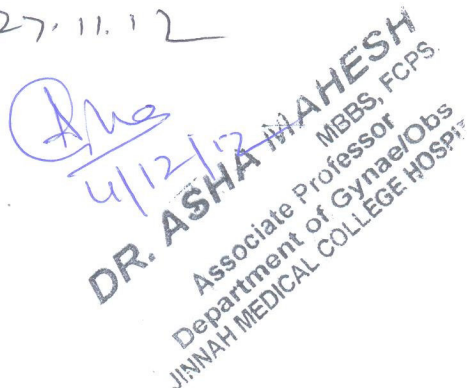 27.11.12
4/12/12
DR. ASHA MAHESH
MBBS, FCPS.
Associate Professor
Department of Gynae/Obs
JINNAH MEDICAL COLLEGE HOSPIT